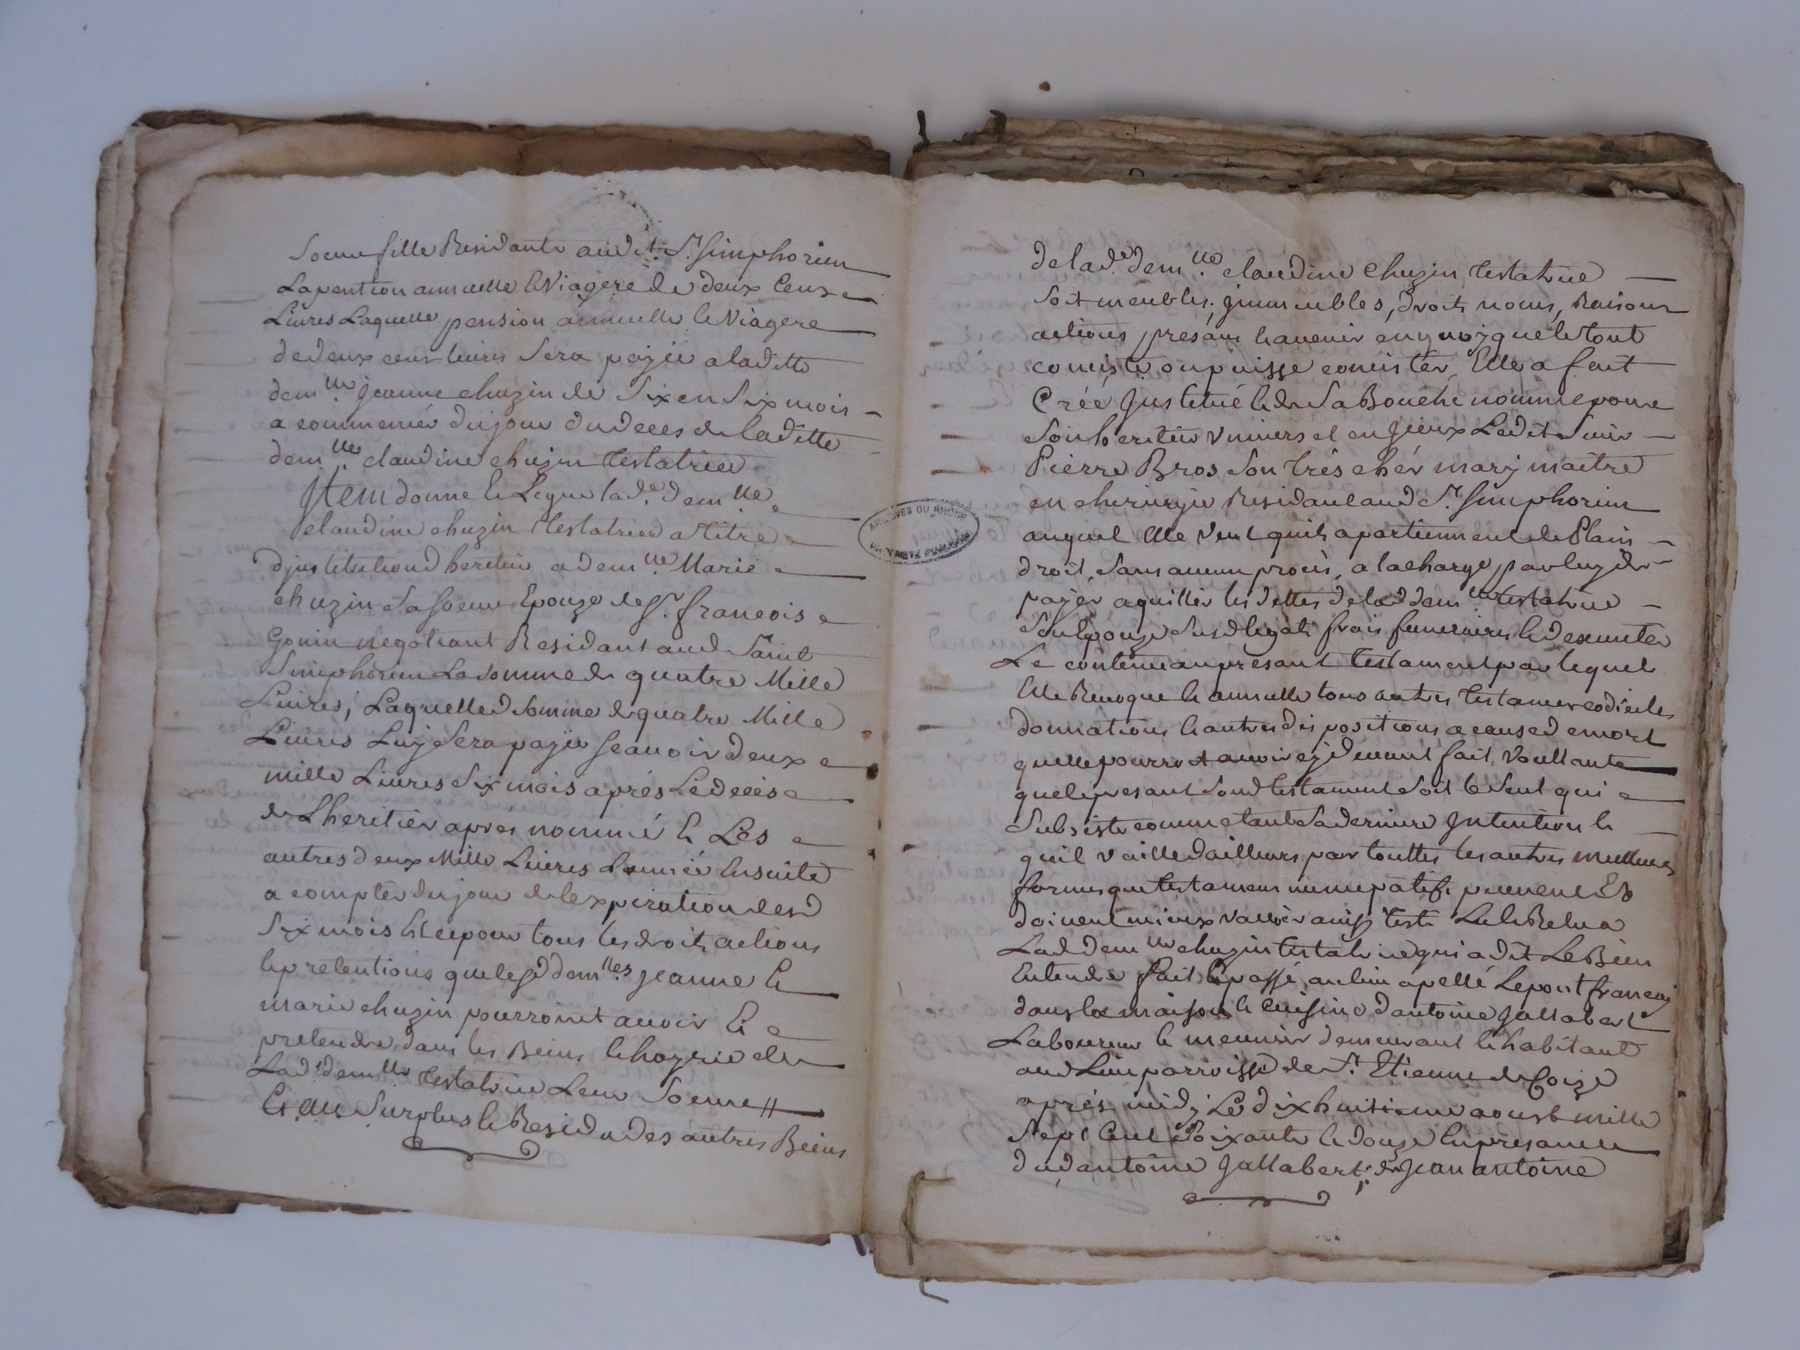 Soeur fille Residante audit St. Simphorien
La pention annuelle & Viagere de deux Cens
Livres Laquelle pension annuelle & Viagere
de deux cens livres Sera payée a laditte
demlle Jeanne chuzin de Six en Six mois
a commencer du jour du deces de laditte
demlle claudine chuzin testatrice
Item donne & Legue lade. demlle.
claudine chuzin testatrice a titre
d'institution d'heritier a demlle. Marie
chuzin Sa soeur Epouze de Sr. francois
Gonin negotiant Residant aud Saint
Simphorien La somme de quatre Mille
Livres, Laquelle d somme de quatre Mille
Livres Luy Sera payée scauoir deux
mille Livres Six mois aprés Le deces
de Lheritier aprés nommé & Les
autres deux Mille Livres L'année ensuite
a compter du jour de lexpiration desd
Six mois & ce pour tous les droits actions
& pretentions que lesd demlles Jeanne &
marie chuzin pourroint auoir &
pretendre dans les Biens & hoyrie de
Lad. demlle testatrice Leur Soeur
Et au Surplus & Residu des autres Biens
de lade. demlle. claudine chuzin testatrice
Soit meubles, immeubles, droits noms, Raisons
actions presans & auenir en quoy que le tout
conciste ou puisse concister, Elle a fait
Créé Institué & de Sa Bouche nommé pour
Son heritier vniversel en Jceux Ledit Sieur
Pierre Bros Son trés chér mary maitre
en chirurgie Residant aud St. Simphorien
auquel Elle Veut quils apartiennent de Plain
droit, Sans aucun procès, a la charge par luy de
payer aquitter les dettes de lad demlle testatrice
Son Epouze Susd legats frais funeraires & dexecuter
Le contenu au presant testament par lequel
Elle Revoque & annulle tous autres testamens codiciles
donnations & autres dispositions a cause de mort
quelle pourroit auoir cy deuant fait, Voullante
que le presant Sond testament Soit le Seul qui
Subsiste comme etant Sa derniere Intention &
quil vaille dailleurs par touttes les autres meilleures
formes que testamens nuncupatifs peuvent Et
doivent mieux valloir ainsy testé Lu & Relu a
Lad demlle chuzin testatrice qui a dit Le Bien
Entendre fait & passé au lieu apellé Le pont francois
dans la maison & cuisine d'antoine Jallabert
Laboureur & meunier demeurant & habitant
aud Lieu parroisse de St. Etienne de Coize
aprés midy Le dixhuitieme aoust mille
Sept Cent Soixante & douze En presance
dud antoine Jallabert, de Jean antoine
ARCHIVES DU RHONE